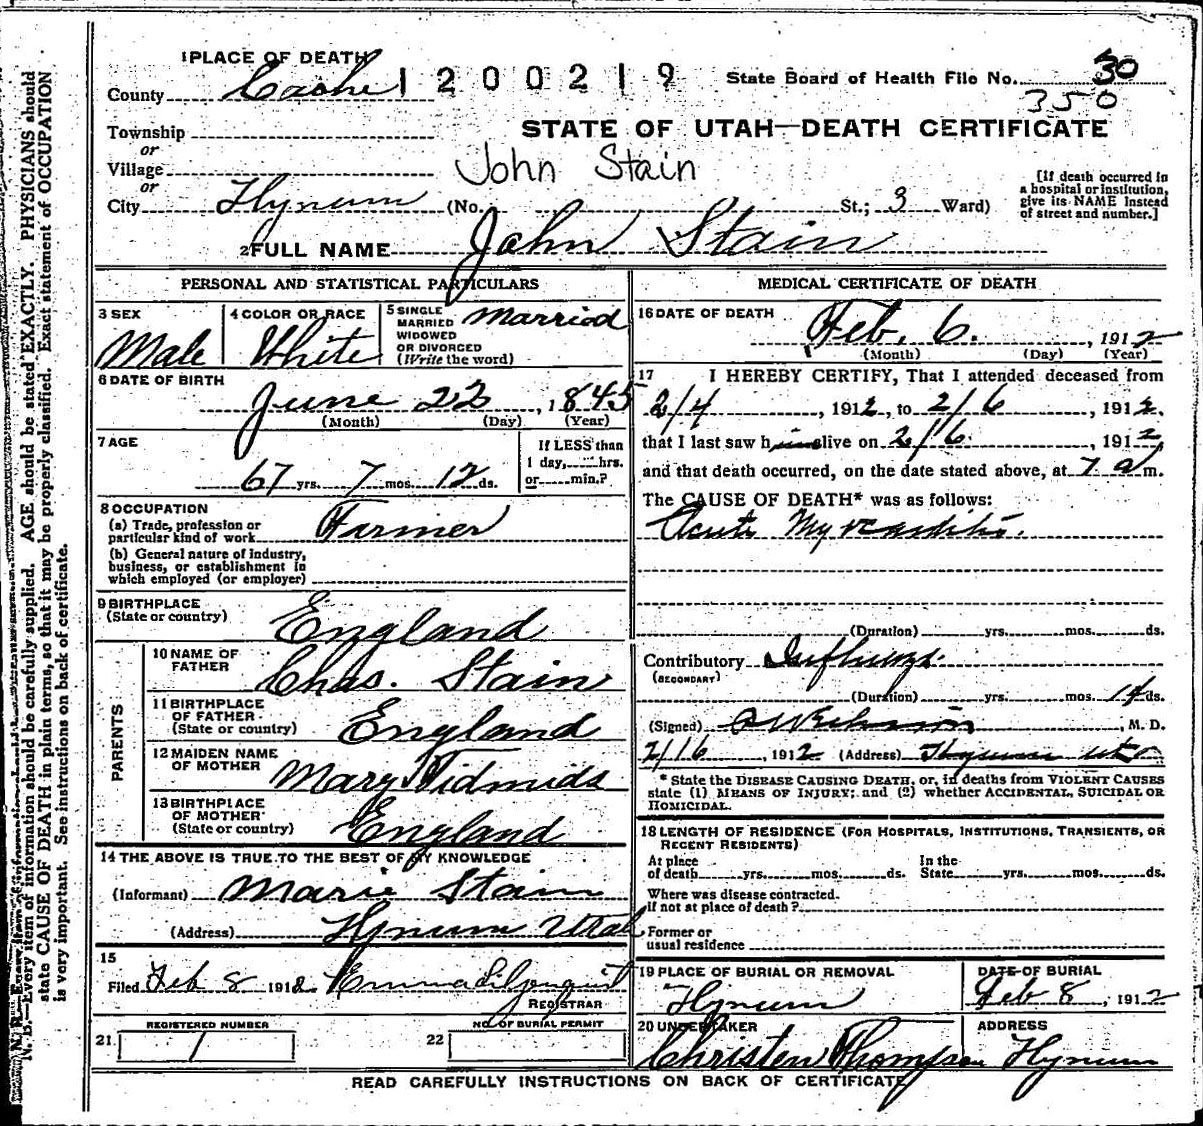 1 PLACE OF DEATH
County Cache 1 2 0 0 2 1 9 State Board of Health File No. 30
350
Township
STATE OF UTAH—DEATH CERTIFICATE
or
Village John Stain
or
City Hyrum (No. St.; 3 Ward)
[If death occurred in
a hospital or institution,
give its NAME instead
of street and number.]
2 FULL NAME John Stain
PERSONAL AND STATISTICAL PARTICULARS
3 SEX
Male
4 COLOR OR RACE
White
5 SINGLE
MARRIED
WIDOWED
OR DIVORCED
(Write the word)
Married
6 DATE OF BIRTH
June 22, 1845
(Month) (Day) (Year)
7 AGE
67 yrs. 7 mos. 12 ds.
If LESS than
1 day, hrs.
or min.?
8 OCCUPATION
(a) Trade, profession or
particular kind of work Farmer
(b) General nature of industry,
business, or establishment in
which employed (or employer)
9 BIRTHPLACE
(State or country) England
PARENTS
10 NAME OF
FATHER Chas. Stain
11 BIRTHPLACE
OF FATHER
(State or country) England
12 MAIDEN NAME
OF MOTHER Mary
13 BIRTHPLACE
OF MOTHER
(State or country) England
14 THE ABOVE IS TRUE TO THE BEST OF MY KNOWLEDGE
(Informant) Marie Stain
(Address) Hyrum Utah
15
Filed Feb 8 1912 Emma Liljenquist
REGISTRAR
REGISTERED NUMBER
21 1
NO. OF BURIAL PERMIT
22
MEDICAL CERTIFICATE OF DEATH
16 DATE OF DEATH
Feb. 6. , 1912
(Month) (Day) (Year)
17 I HEREBY CERTIFY, That I attended deceased from
2/4 , 1912, to 2/6 , 1912.
that I last saw him alive on 2/6. , 1912,
and that death occurred, on the date stated above, at 7 a m.
The CAUSE OF DEATH* was as follows:
Acute Myocarditis.
(Duration) yrs. mos. ds.
Contributory Influenza.
(SECONDARY)
(Duration) yrs. mos. 14 ds.
(Signed) , M. D.
2/16 , 1912 (Address) Hyrum Utah
* State the DISEASE CAUSING DEATH, or, in deaths from VIOLENT CAUSES
state (1) MEANS OF INJURY; and (2) whether ACCIDENTAL, SUICIDAL OR
HOMICIDAL.
18 LENGTH OF RESIDENCE (FOR HOSPITALS, INSTITUTIONS, TRANSIENTS, OR
RECENT RESIDENTS)
At place
of death yrs. mos. ds.
In the
State yrs. mos. ds.
Where was disease contracted.
If not at place of death?
Former or
usual residence
19 PLACE OF BURIAL OR REMOVAL
Hyrum
DATE OF BURIAL
Feb 8 , 1912
20 UNDERTAKER
Christen Thompson
ADDRESS
Hyrum
READ CAREFULLY INSTRUCTIONS ON BACK OF CERTIFICATE
N. B.—Every item of information should be carefully supplied. AGE should be stated EXACTLY. PHYSICIANS should
state CAUSE OF DEATH in plain terms, so that it may be properly classified. Exact statement of OCCUPATION
is very important. See instructions on back of certificate.